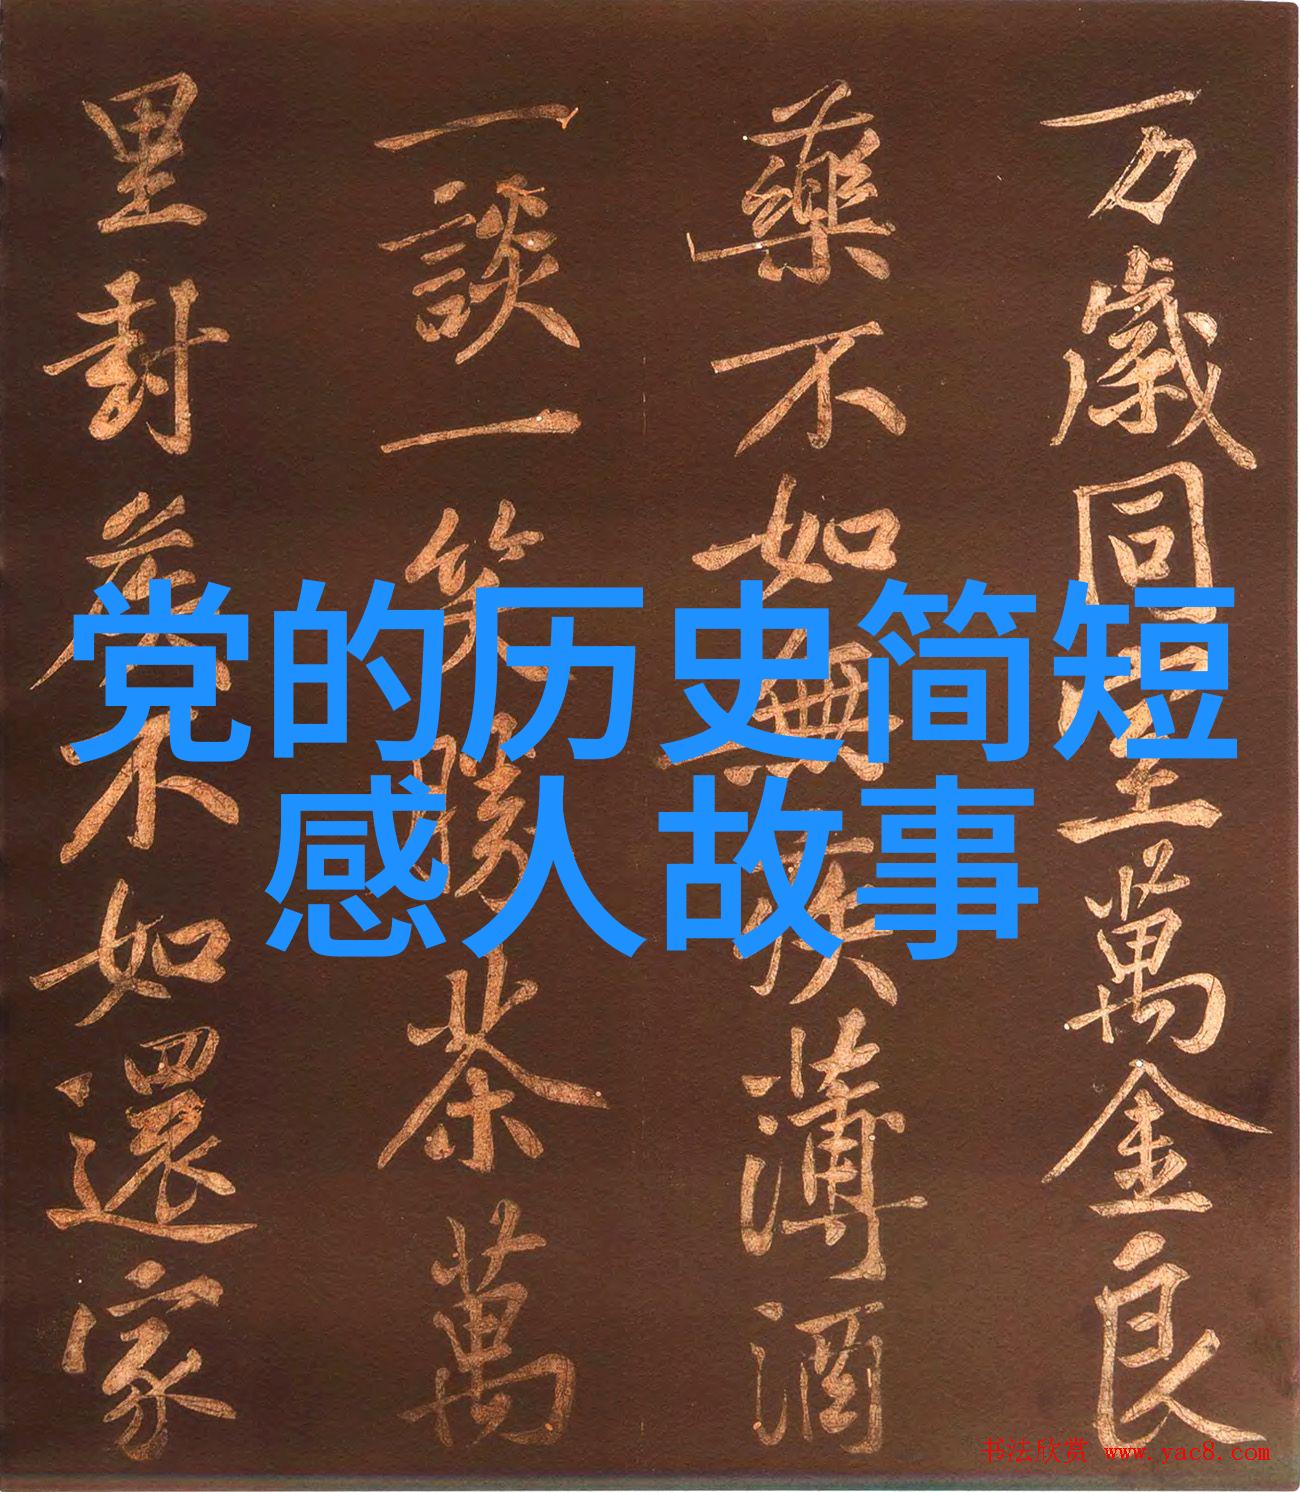 党的历史简短
感人故事
万歲同萬金良
藥不如無疾薄酒
一談一笑勝茶萬
里封侯不如還家
书法欣赏 www.yac8.com